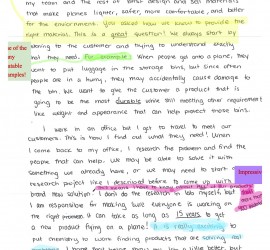 my team and the rest of BMSF design and sell materials
that make planes lighter, safer, more comfortable, and better
for the environment. You asked how we know to provide the
right material. This is a great question! We always start by
listening to the customer and trying to understand exactly
what they need. For example: When people get onto a plane, they
want to put luggage in the storage bins, but since often
people are in a hurry, they may accidentally cause damage to
the bin. We want to give the customer a product that is
going to be the most durable while still meeting other requirements
like weight and appearance that can help protect those bins.
I work in an office but I get to travel to meet our
customers. This is how I find out what they need! When
I come back to my office, I research the problem and find the
people that can help. We may be able to solve it with
something we already have, or we may need to start a
research project like I described before to come up with
brand new solution. I don't do the research in lab myself, but
I am responsible for making sure everyone is working on
the right It can take as long as 15 years to get
a new product flying on a plane! It is really exciting to
put chemistry to work finding products that are solving
of the
any
table
mples!
Impressive